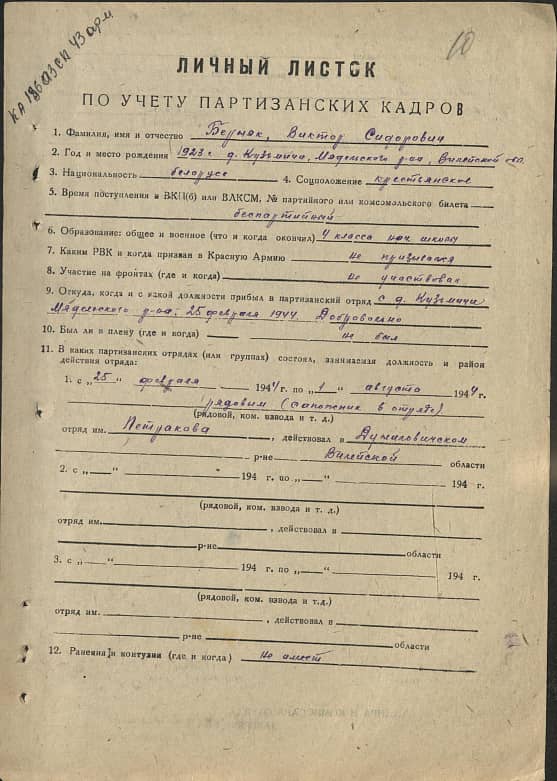 КА 186 сп 43 арм
10
ЛИЧНЫЙ ЛИСТОК
ПО УЧЕТУ ПАРТИЗАНСКИХ КАДРОВ
1. Фамилия, имя и отчество Виктор Сидорович
2. Год и место рождения 1923 г. д. Кузьмичи, Мядельского р-на, Вилейской об.
3. Национальность белорусс 4. Соцположение крестьянское
5. Время поступления в ВКП(б) или ВЛКСМ, № партийного или комсомольского билета
беспартийный
6. Образование: общее и военное (что и когда окончил) 4 класса нач школы
7. Каким РВК и когда призван в Красную Армию не призывался
8. Участие на фронтах (где и когда) не участвовал
9. Откуда, когда и с какой должности прибыл в партизанский отряд с д. Кузьмичи
Мядельского р-на, 25 февраля 1944. Добровольно
10. Был ли в плену (где и когда) не был
11. В каких партизанских отрядах (или группах) состоял, занимаемая должность и район
действия отряда:
1. с „25" февраля 1944 г. по „1" августа 1944 г.
рядовым (сапожник в отряде)
(рядовой, ком. взвода и т. д.)
отряд им. , действовал в Дуниловичском
р-не Вилейской области
2. с „ " 194 г. по „ " 194 г.
(рядовой, ком. взвода и т. д.)
отряд им. , действовал в
р-не области
3. с „ " 194 г. по „ " 194 г.
(рядовой, ком. взвода и т.д.)
отряд им. , действовал в
р-не области
12. Ранения и контузии (где и когда) не имеет